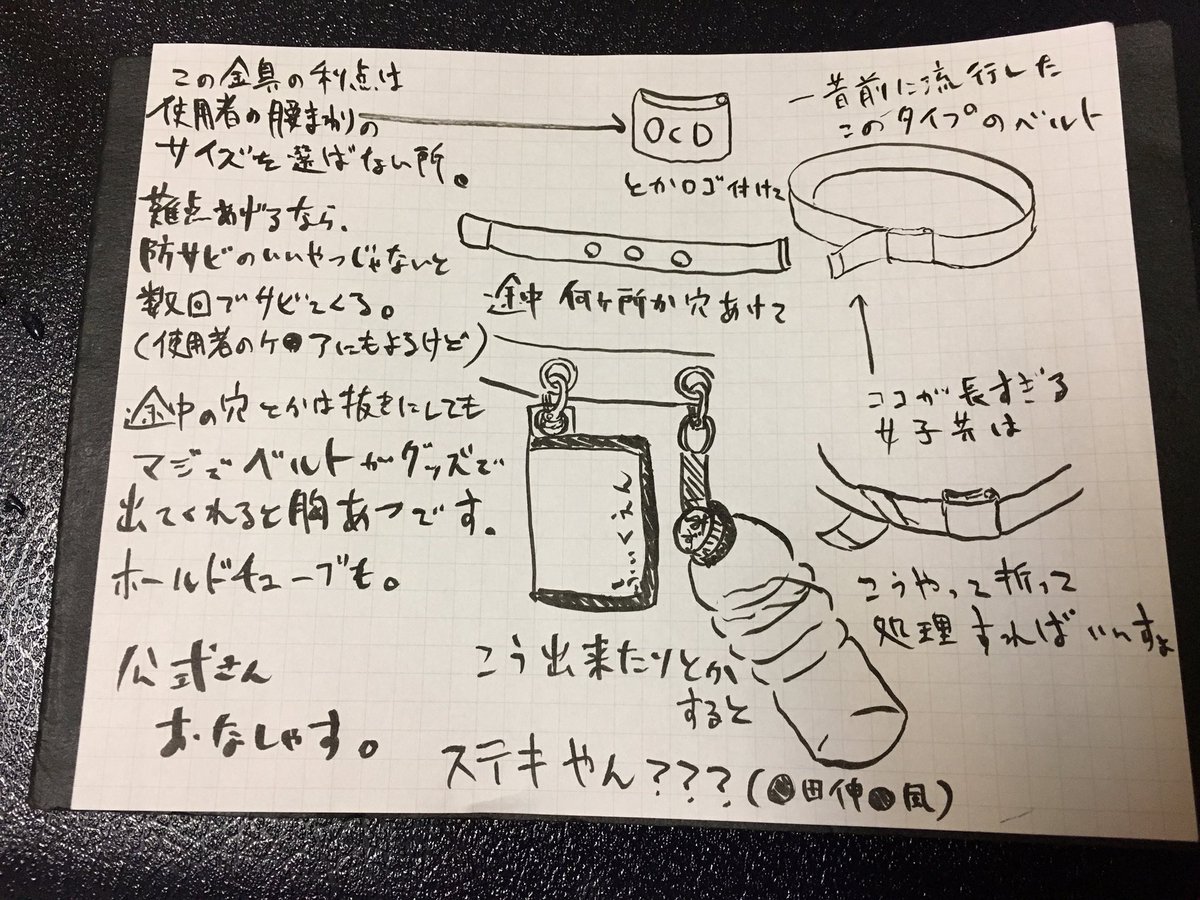 この金具の利点は
使用者の腰まわりの
サイズを選ばない所。
難点あげるなら、
防サビのいいやつじゃないと
数回でサビてくる。
(使用者のケアにもよるけど)
途中の穴とかは抜きにしても
マジでベルトがグッズで
出てくれると胸あつです。
ホールドチューブも。
公式さん
おなしゃす。
OCD
とかロゴ付けて
途中 何ヶ所か穴あけて
こう出来たりとか
すると
ステキやん???(●田伸●風)
一昔前に流行した
このタイプのベルト
ココが長すぎる
女子共は
こうやって折って
処理すればいいすよ